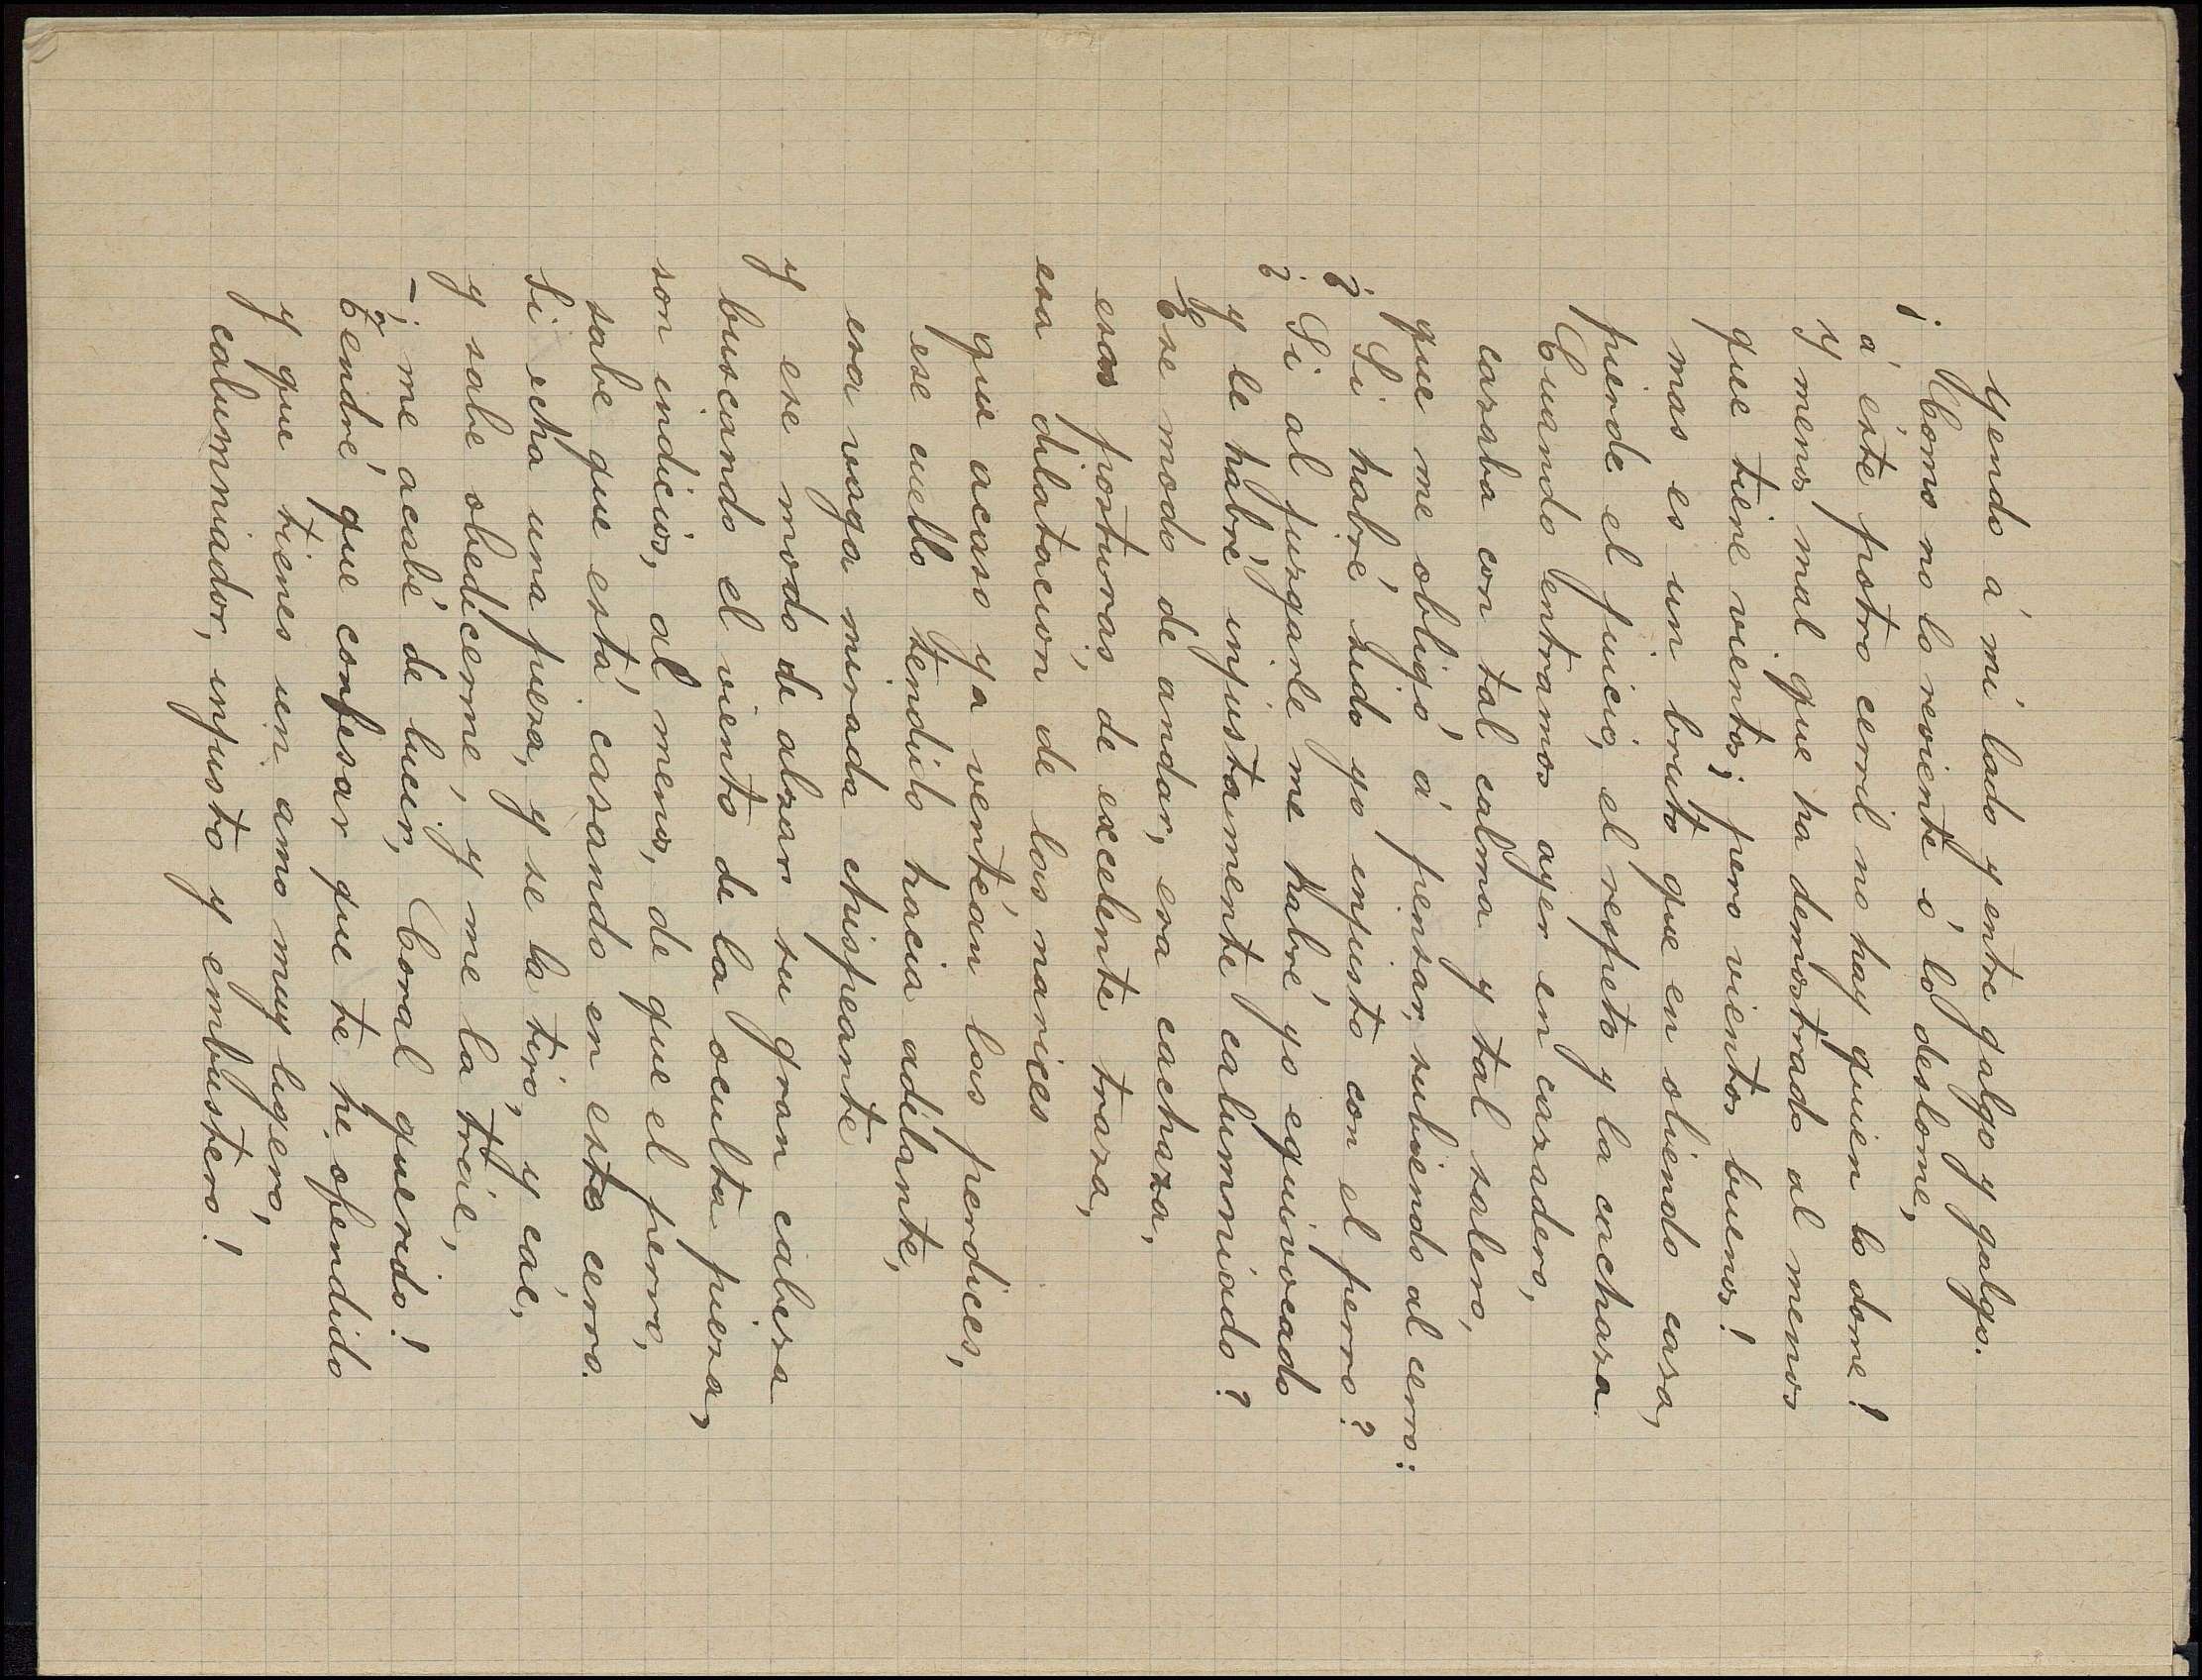 Yendo á mi lado y entre galgo y galgo.
¡Como no lo reviente ó lo deslome,
á éste potro cerril no hay quien lo dome!
Y menos mal que ha demostrado al menos
que tiene vientos; pero vientos buenos!
mas es un bruto que en oliendo caza,
pierde el juicio, el respeto y la cachaza.
Cuando entramos ayer en cazadero,
cazaba con tal calma y tal salero,
que me obligó á pensar, subiendo al cerro:
¿Si habré sido yo injusto con el perro?
¿Si al juzgarle me habré yo equivocado
y le habré injustamente calumniado?
Ese modo de andar, esa cachaza,
esas posturas de excelente traza,
esa dilatación de las narices
que acaso ya ventéan las perdices,
ese cuello tendido hacia adelante,
esa vaga mirada chispeante
y ese modo de alzar su gran cabeza
buscando el viento de la oculta pieza,
son indicios, al menos, de que el perro,
sabe que está cazando en este cerro.
Si echa una pieza, y se la tiro, y cáe,
y sabe obedecerme, y me la tráe,
—¡me acabé de lucir, Coral querido!
¡Tendré que confesar que te he ofendido
y que tienes un amo muy ligero,
calumniador, injusto y embustero!